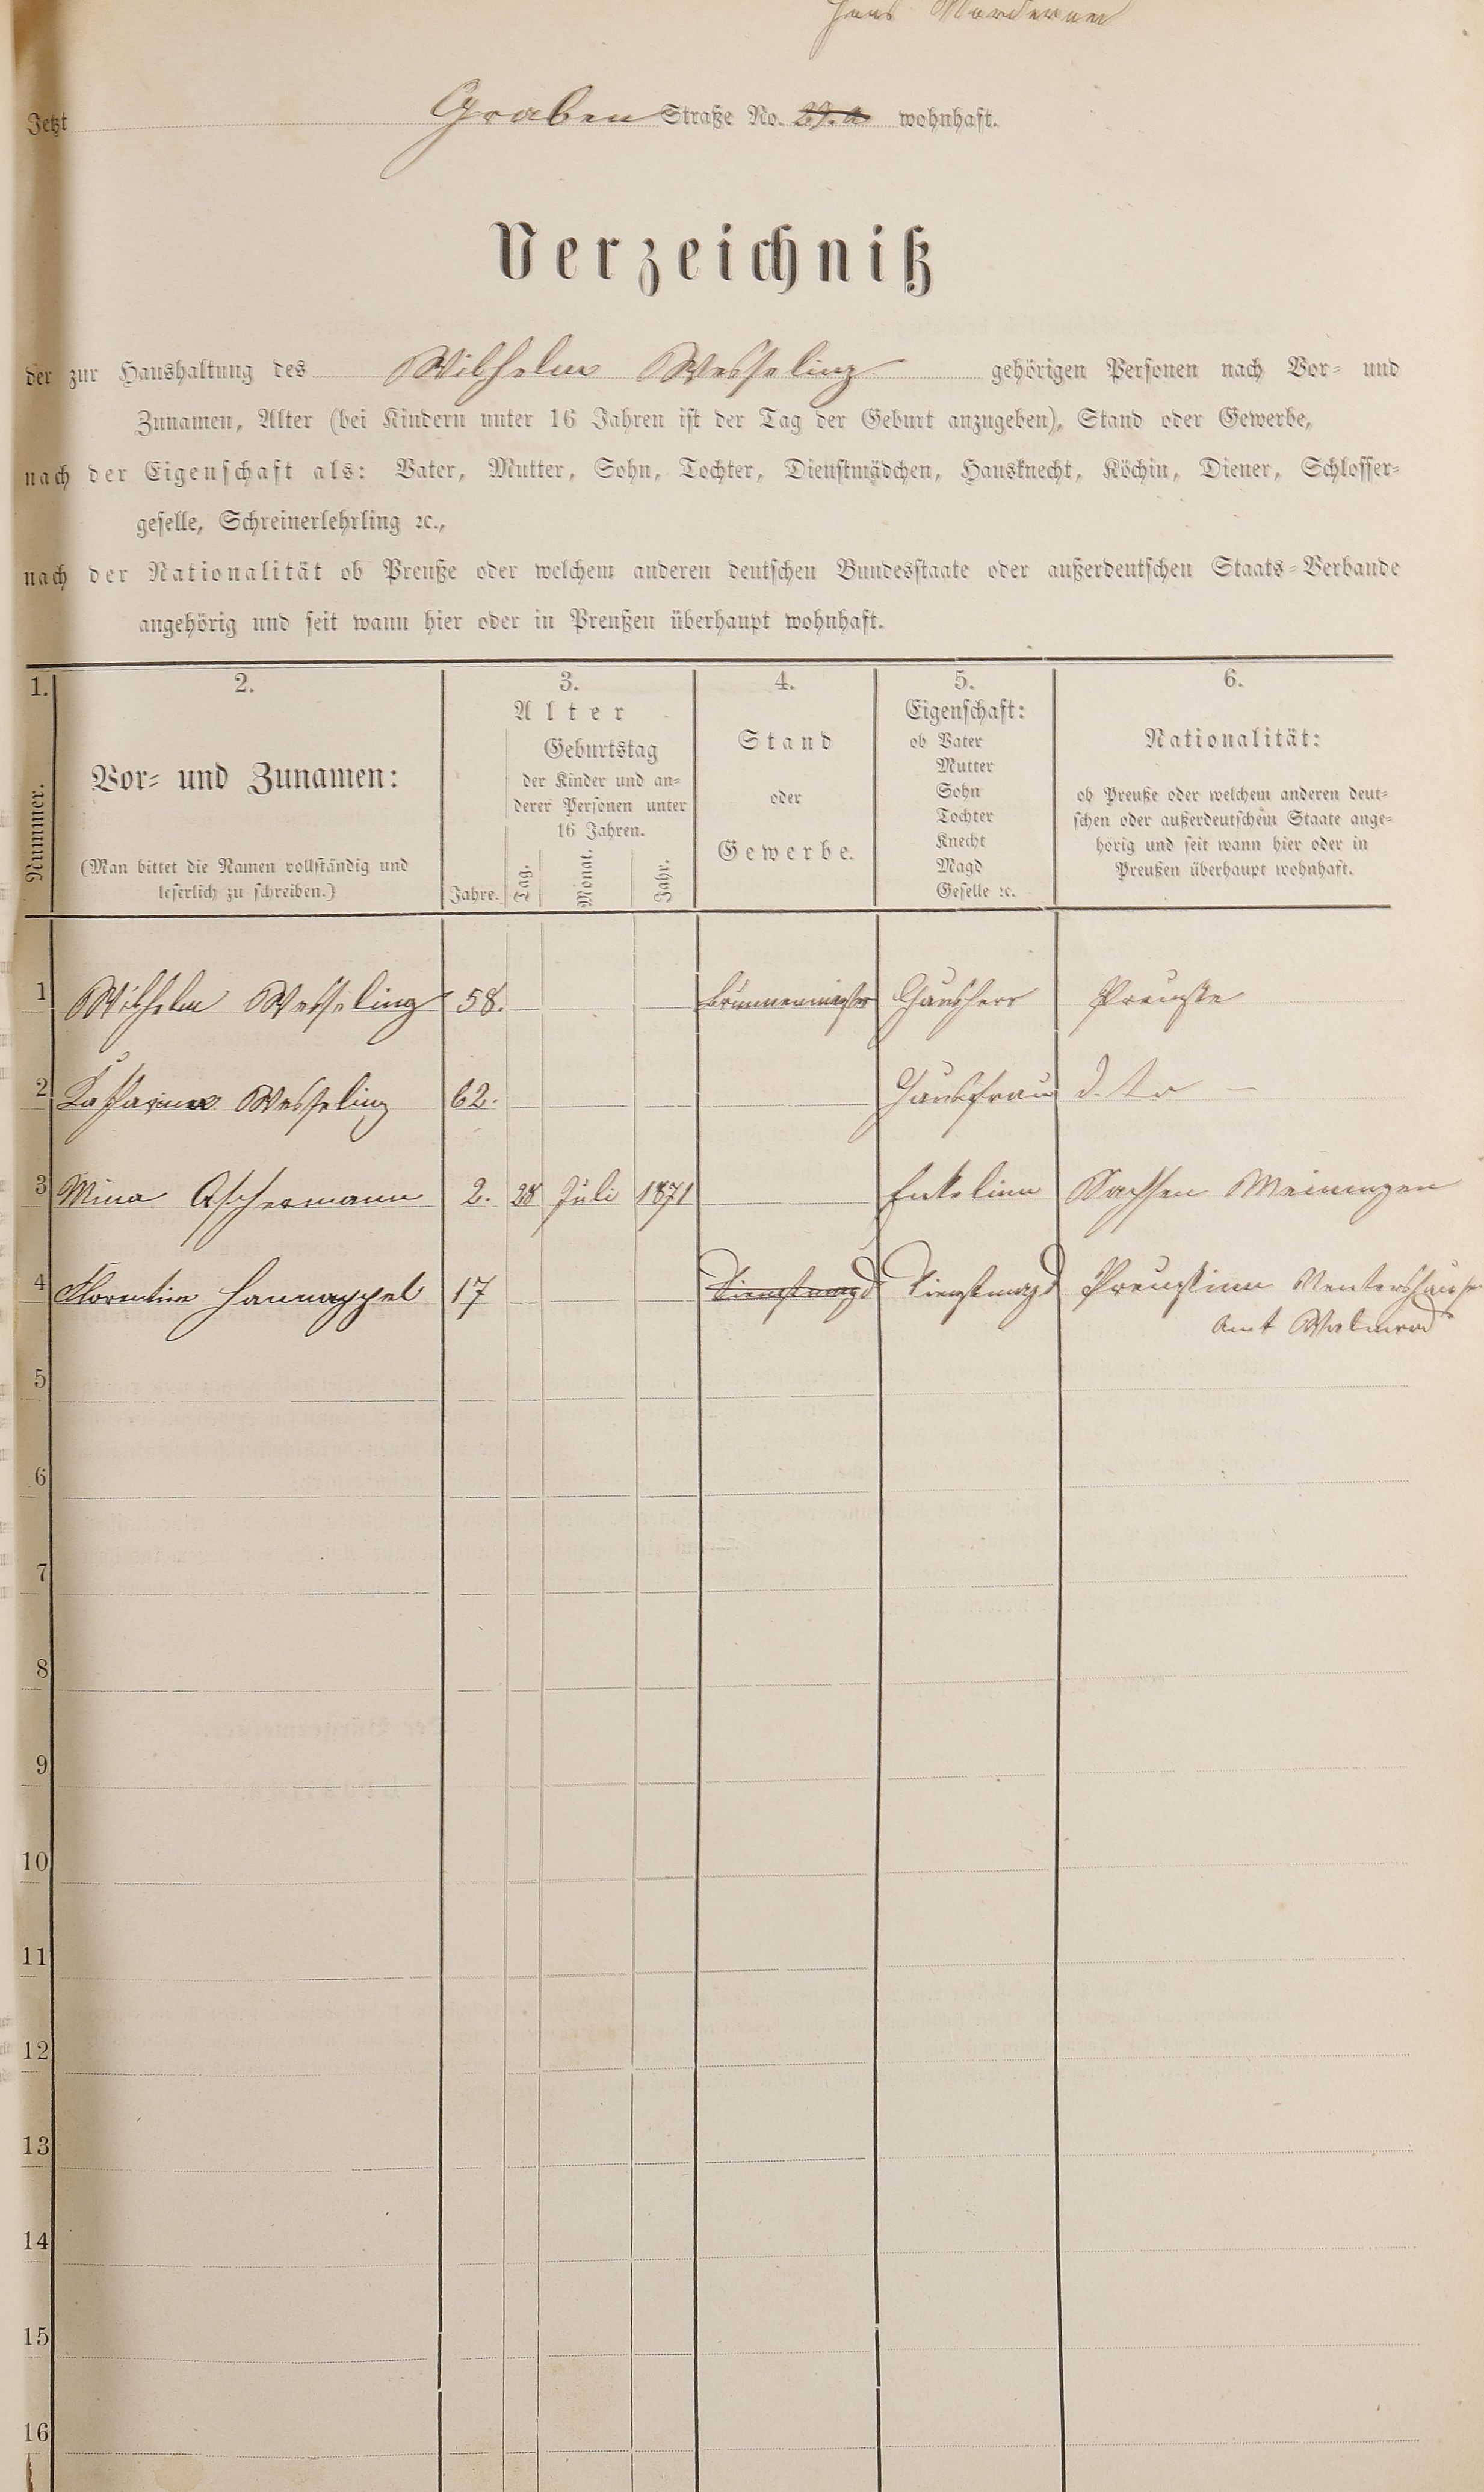 Haus Norderney
Jetzt Graben Straße No. 29. a wohnhaft.
Verzeichniß
der zur Haushaltung des Wilhelm Wesseling gehörigen Personen nach Vor- und
Zunamen, Alter (bei Kindern unter 16 Jahren ist der Tag der Geburt anzugeben), Stand oder Gewerbe,
nach der Eigenschaft als: Vater, Mutter, Sohn, Tochter, Dienstmädchen, Hausknecht, Köchin, Diener, Schlosser-
geselle, Schreinerlehrling ꝛc.,
nach der Nationalität ob Preuße oder welchem anderen deutschen Bundesstaate oder außerdeutschen Staats-Verbande
angehörig und seit wann hier oder in Preußen überhaupt wohnhaft.
1.
Nummer.
2.
Vor- und Zunamen:
(Man bittet die Namen vollständig und
leserlich zu schreiben.)
3.
Alter
Jahre.
Geburtstag
der Kinder und an-
derer Personen unter
16 Jahren.
Tag. Monat. Jahr.
4.
Stand
oder
Gewerbe.
5.
Eigenschaft:
ob Vater
Mutter
Sohn
Tochter
Knecht
Magd
Geselle ꝛc.
6.
Nationalität:
ob Preuße oder welchem anderen deut-
schen oder außerdeutschem Staate ange-
hörig und seit wann hier oder in
Preußen überhaupt wohnhaft.
1 Wilhelm Wesseling 58. Brunnenmeister Hausherr Preuße
2 Katharina Wesseling 62. Hausfrau d. to —
3 Mina Aschermann 2. 28 Juli 1871 Enkelinn Sachsen Meiningen
4 Florentine Hannappel 17 Dienstmagd Dienstmagd Preußinn
Amt
5
6
7
8
9
10
11
12
13
14
15
16